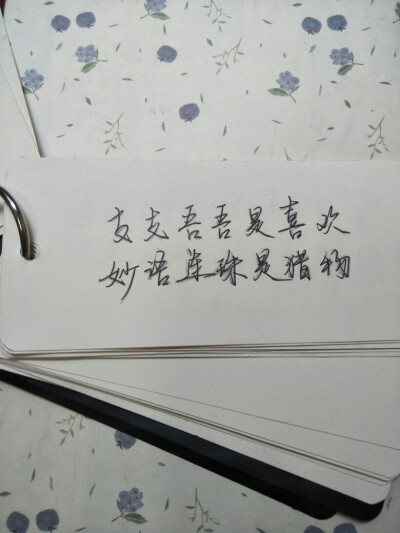 支支吾吾是喜欢
妙语连珠是猎物